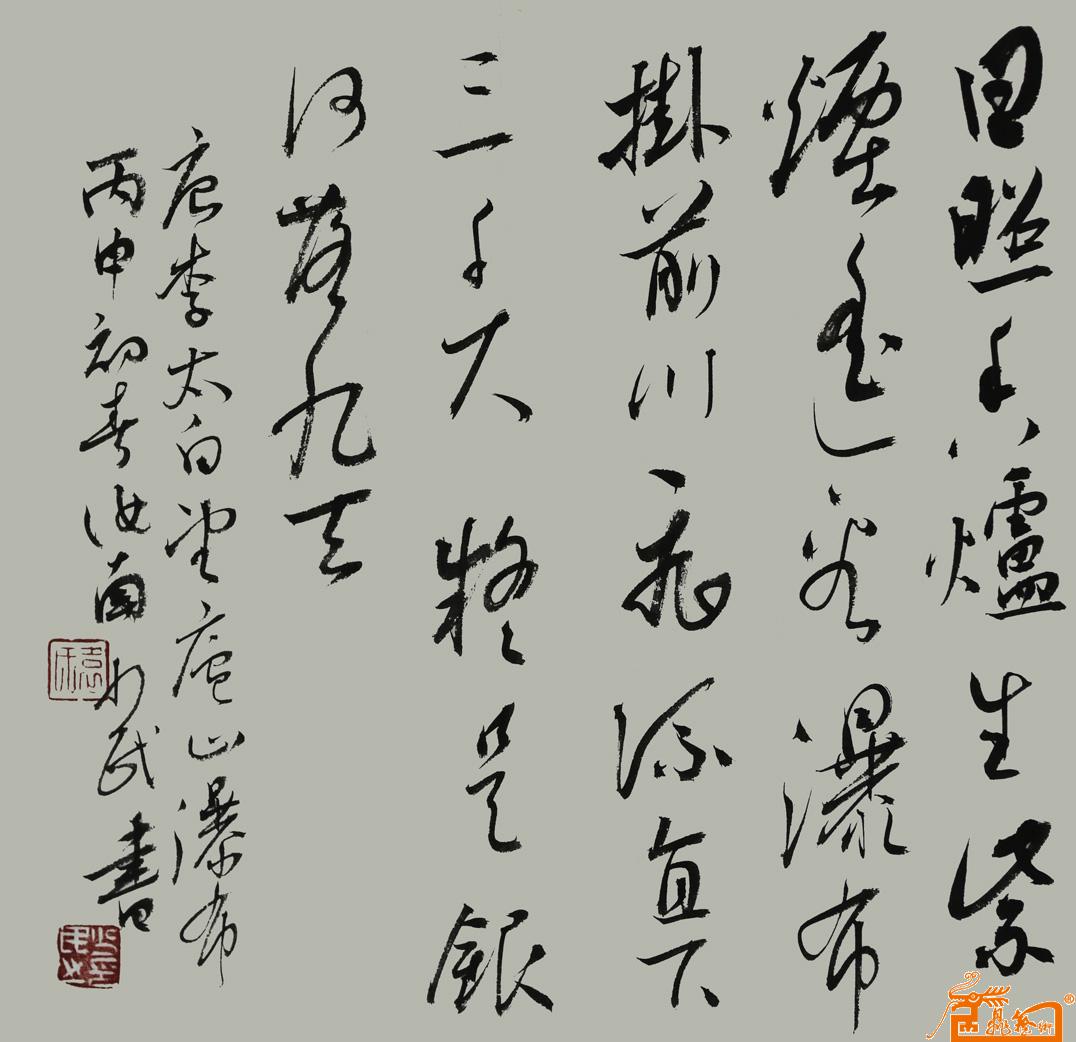 日照香爐生紫
煙遙看瀑布
掛前川飛流直下
三千尺疑是銀
河落九天
唐李太白望廬山瀑布
丙申初春汝南民書